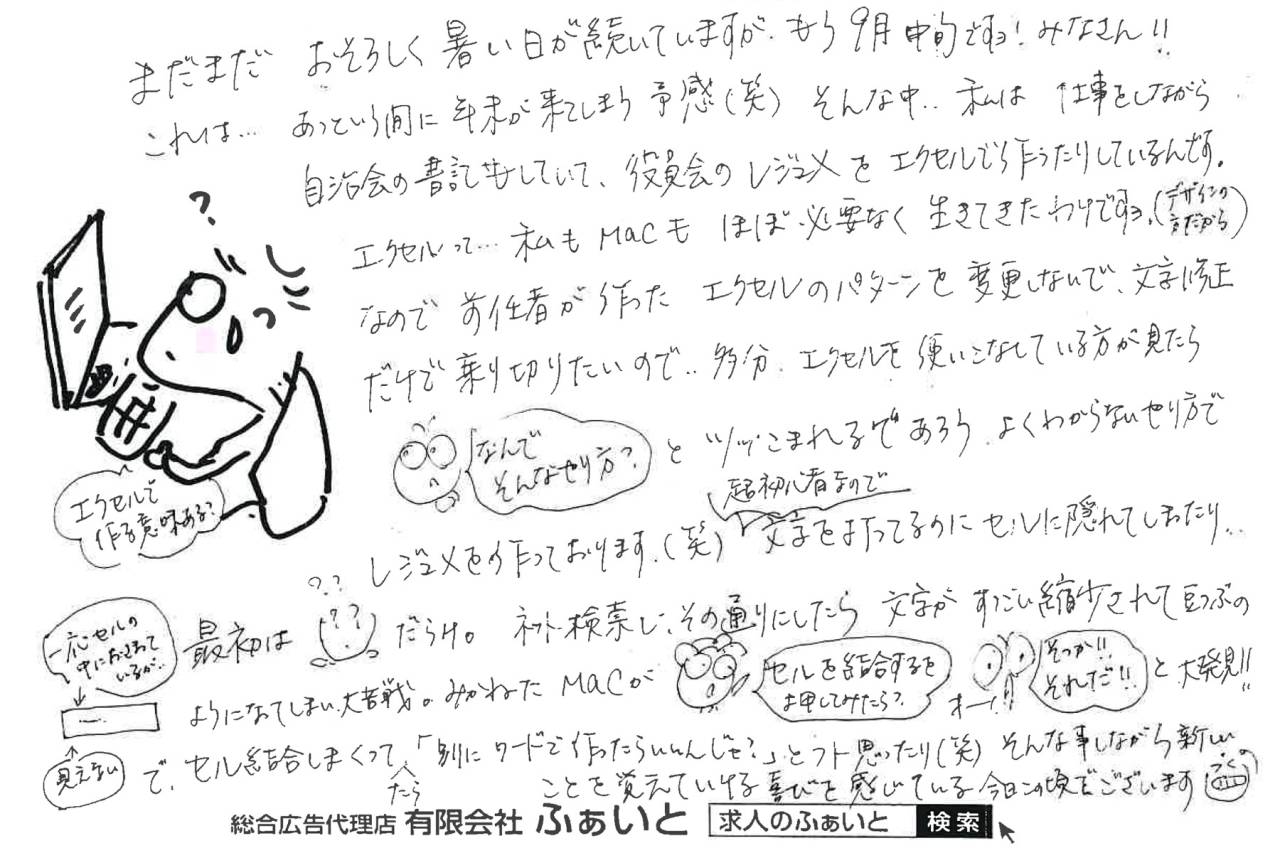 まだまだ おそろしく 暑い日が続いていますが、もう9月中旬ですョ!みなさん!!
これは… あっという間に年末が来てしまう予感(笑) そんな中.. 私は 仕事をしながら
自治会の書記もしていて、役員会のレジュメをエクセルで作ったりしているんです。
エクセルって… 私もMacも ほぼ必要なく 生きてきたわけですョ。(デザインの方だから)
なので 前任者が作った エクセルのパターンを変更しないで、文字修正
だけで乗り切りたいので.. 多分、エクセルを使いこなしている方が見たら
なんで
そんなやり方?
と ツッこまれるであろう、よくわからないやり方で
超初心者なので
レジュメを作っております。(笑) 文字を打ってるのにセルに隠れてしまったり..
エクセルで
作る意味ある?
?
??
??
最初は だらけ。ネット検索し、その通りにしたら 文字が すごい縮小されて豆つぶの
一応セルの
中におさまって
いるが..
見えない
ようになってしまい、大苦戦。みかねたMacが
セルを結合するを
お押してみたら?
オー!
そっか!!
それだ!!
と 大発見!!
で、セル結合しまくって たら 「別に ワードで作ったらいいんじゃ?」とフト思ったり(笑) そんな事しながら新しい
ことを覚えていける喜びを感じている今日この頃でございます
総合広告代理店 有限会社 ふぁいと 求人のふぁいと 検索